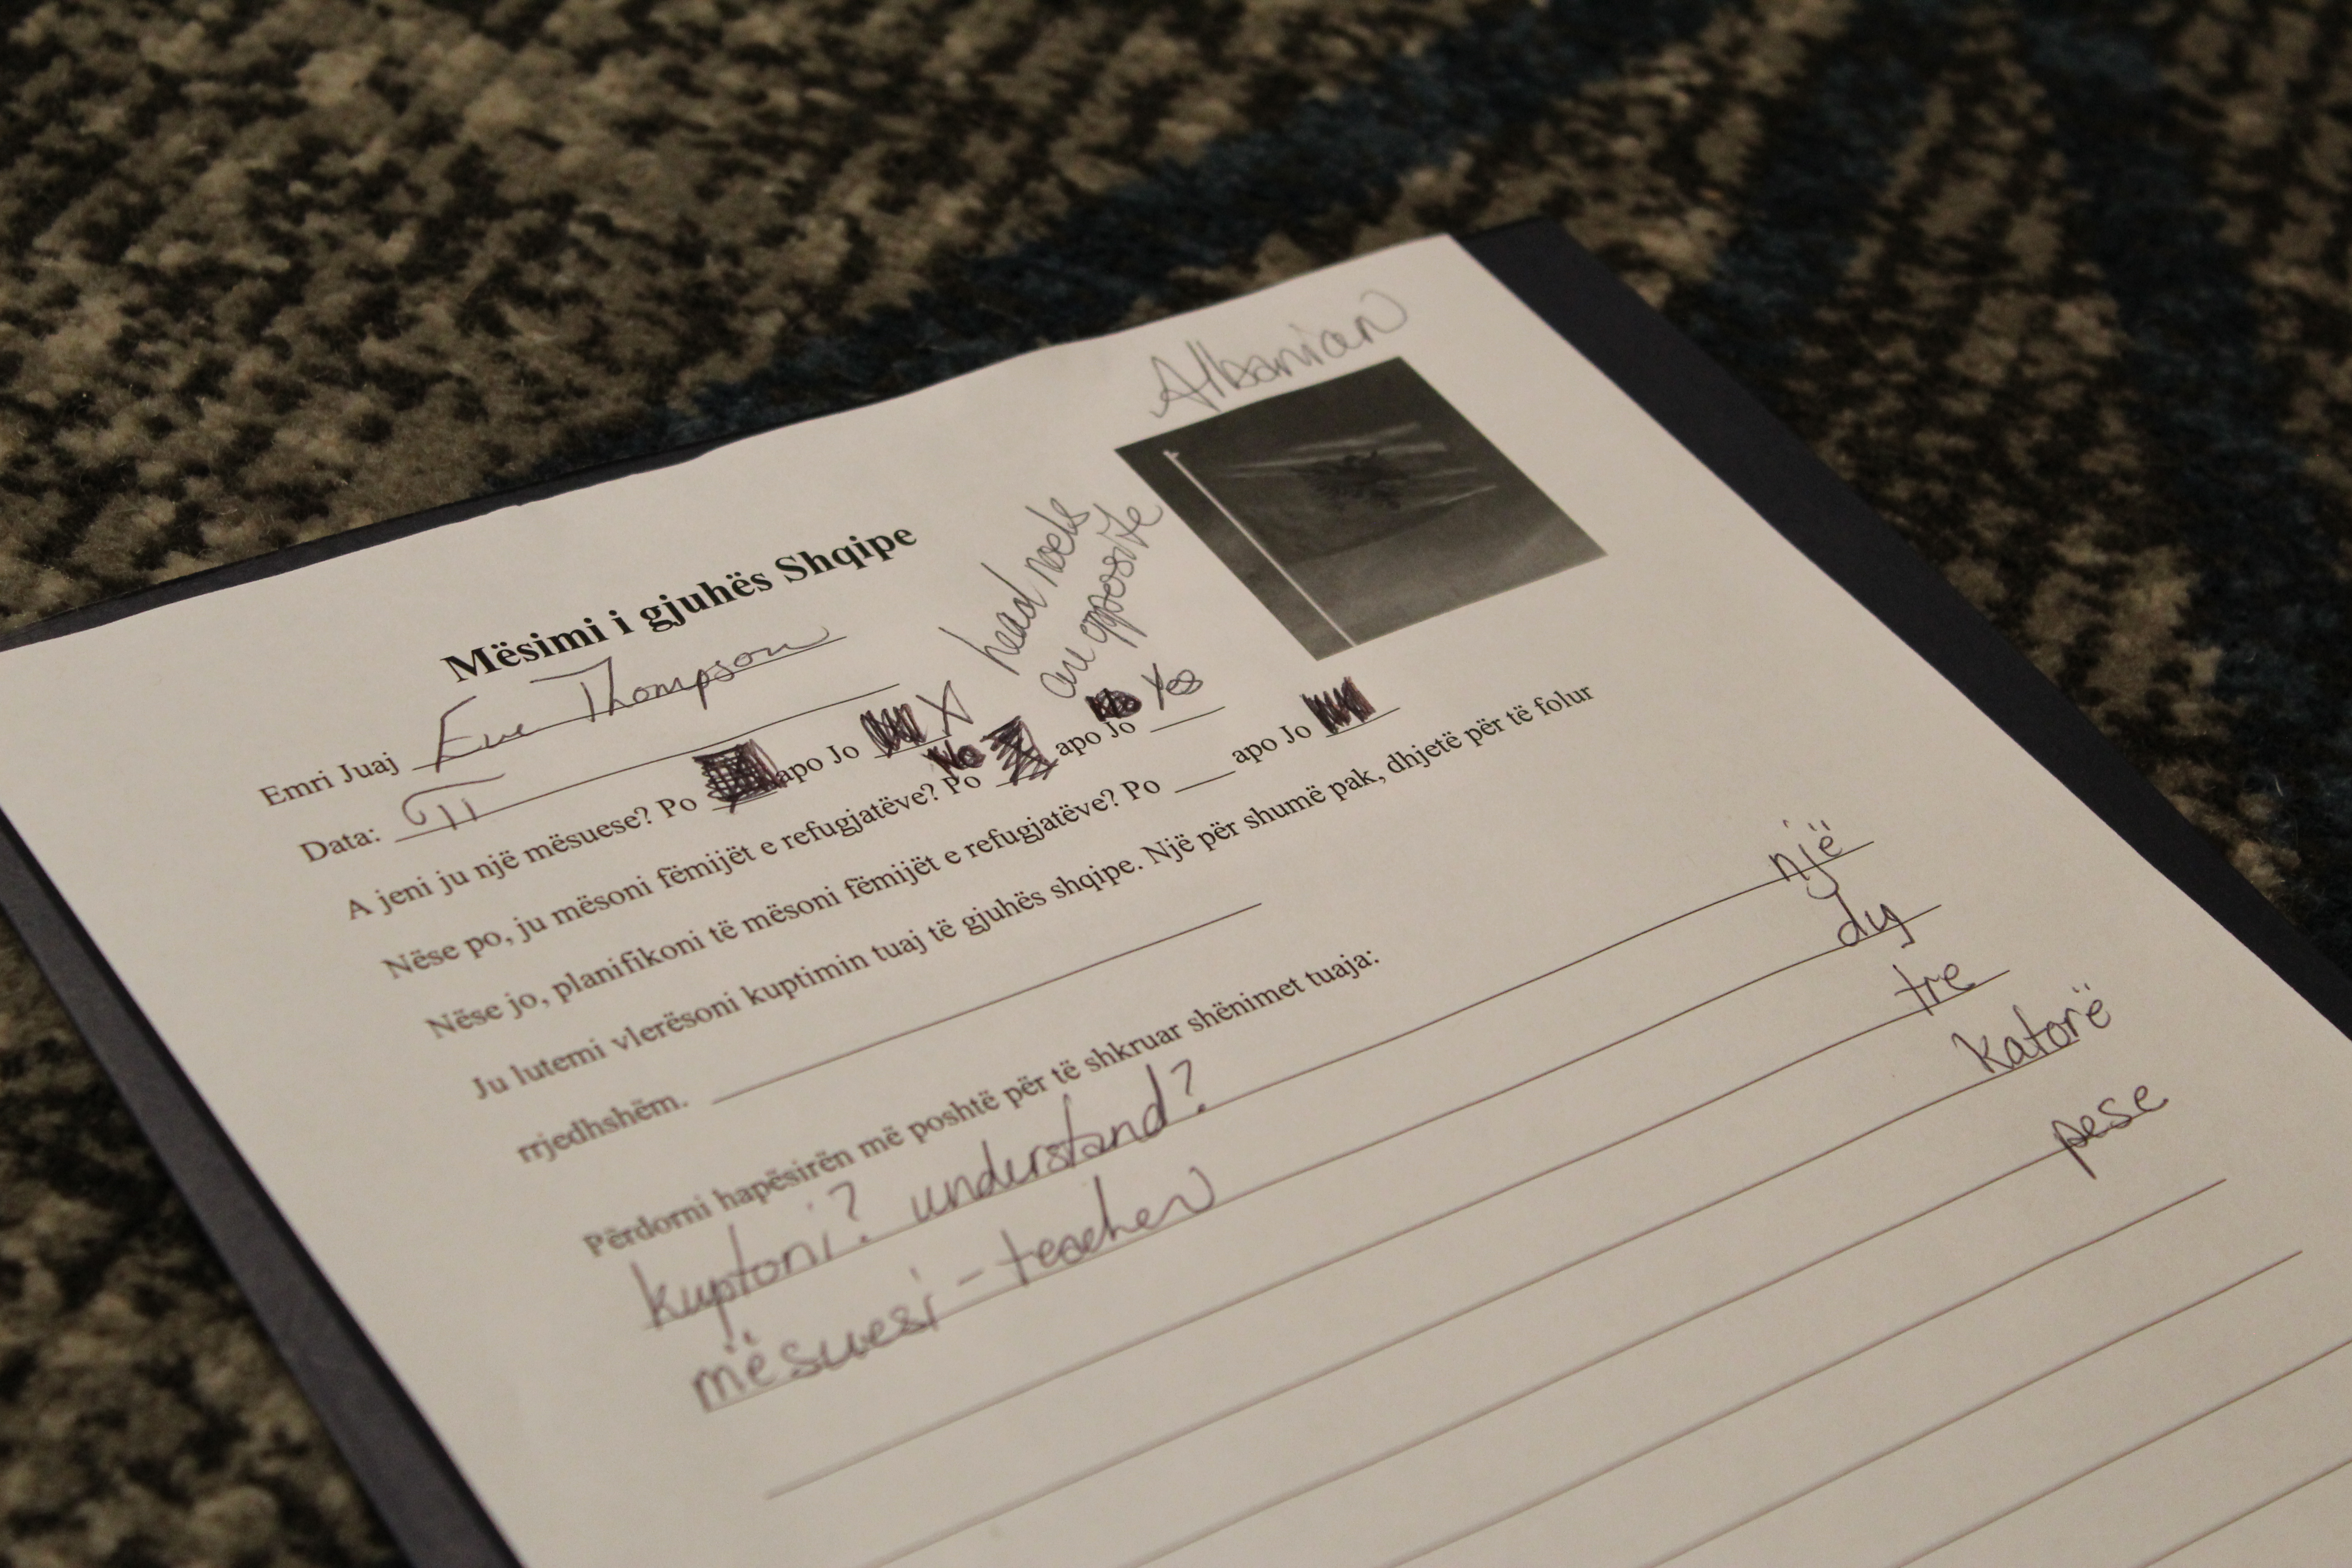 Albanian
head nods
are opposite
Mësimi i gjuhës Shqipe
Emri Juaj Eve Thompson
Data:
A jeni ju një mësuese? Po apo Jo X
Nëse po, ju mësoni fëmijët e refugjatëve? Po No apo Jo Yes
Nëse jo, planifikoni të mësoni fëmijët e refugjatëve? Po ___ apo Jo
Ju lutemi vlerësoni kuptimin tuaj të gjuhës shqipe. Një për shumë pak, dhjetë për të folur
rrjedhshëm.
Përdorni hapësirën më poshtë për të shkruar shënimet tuaja:
kuptoni? understand? një
mësuesi - teacher dy
tre
katorë
pese